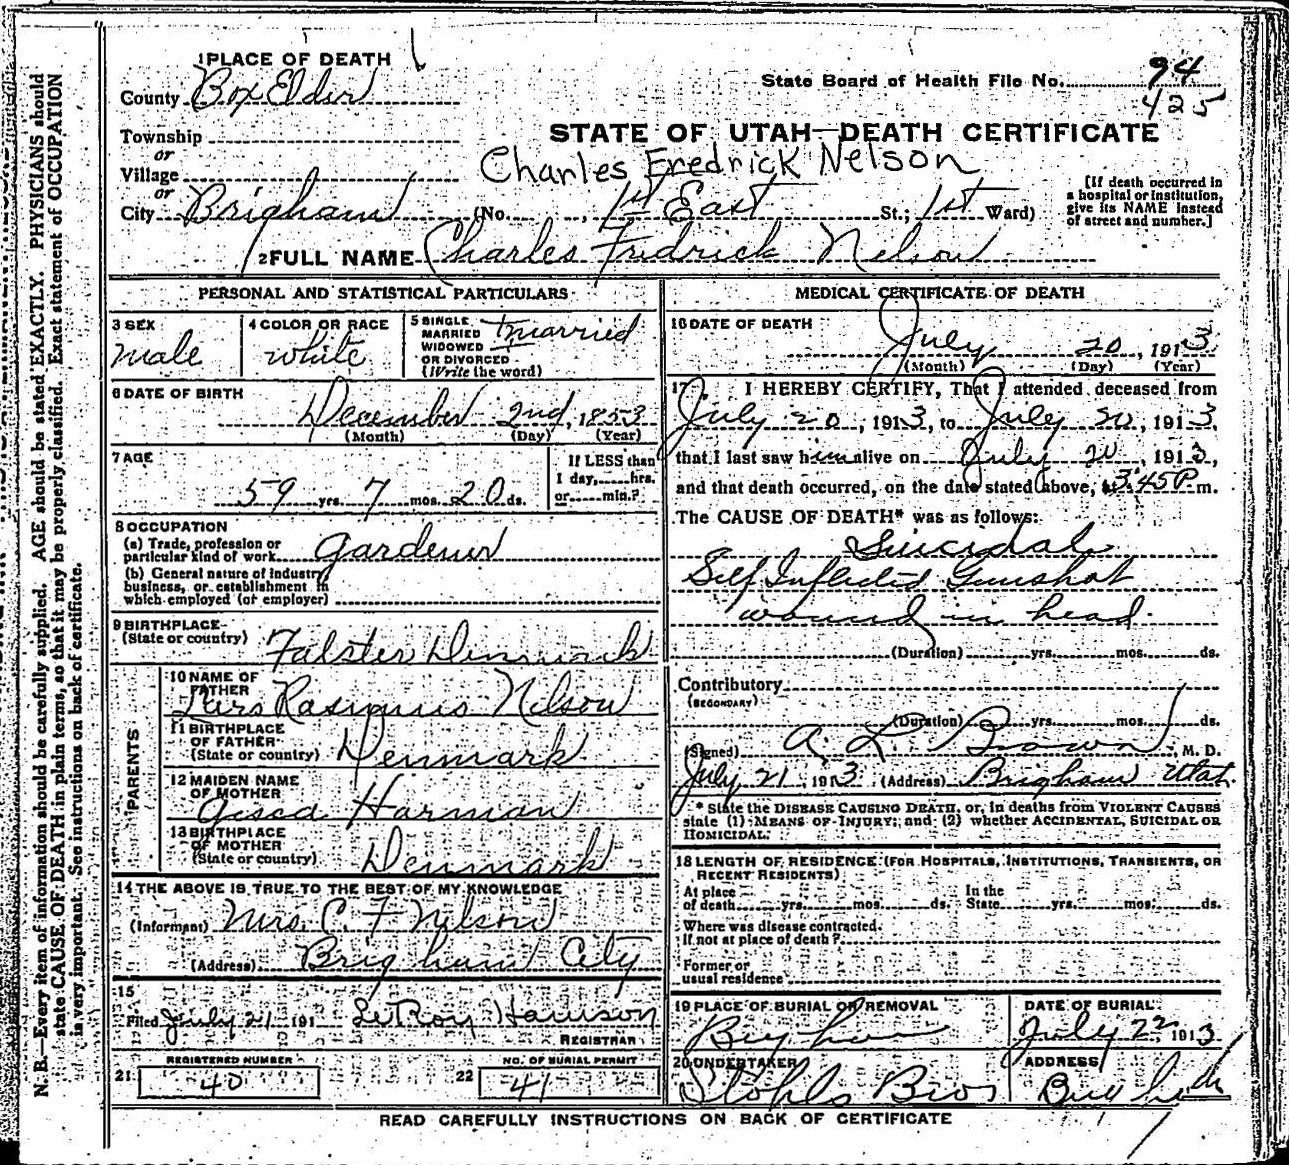 1 PLACE OF DEATH
County Box Elder
State Board of Health File No. 94
425
Township
or
Village
or
City Brigham
STATE OF UTAH—DEATH CERTIFICATE
Charles Fredrick Nelson
(No. , 1st East St.; 1st Ward)
[If death occurred in
a hospital or institution,
give its NAME instead
of street and number.]
2 FULL NAME Charles Fredrick Nelson
PERSONAL AND STATISTICAL PARTICULARS
3 SEX
male
4 COLOR OR RACE
white
5 SINGLE
MARRIED
WIDOWED
OR DIVORCED
(Write the word)
married
6 DATE OF BIRTH
December 2nd, 1853
(Month) (Day) (Year)
7 AGE
59 yrs. 7 mos. 20 ds.
If LESS than
1 day, hrs.
or min.?
8 OCCUPATION
(a) Trade, profession or
particular kind of work Gardener
(b) General nature of industry
business, or establishment in
which employed (or employer)
9 BIRTHPLACE
(State or country) Falster Denmark
PARENTS
10 NAME OF
FATHER
Lars Rasmus Nilson
11 BIRTHPLACE
OF FATHER
(State or country) Denmark
12 MAIDEN NAME
OF MOTHER
Harman
13 BIRTHPLACE
OF MOTHER
(State or country) Denmark
14 THE ABOVE IS TRUE TO THE BEST OF MY KNOWLEDGE
(Informant) Mrs. C. F Nilson
(Address) Brigham City
15
Filed July 21 191 LeRoy Harrison
REGISTRAR
REGISTERED NUMBER
21 40
NO. OF BURIAL PERMIT
22 41
MEDICAL CERTIFICATE OF DEATH
16 DATE OF DEATH
July 20, 1913
(Month) (Day) (Year)
17 I HEREBY CERTIFY, That I attended deceased from
July 20, 1913, to July 20, 1913,
that I last saw him alive on July 20, 1913,
and that death occurred, on the date stated above, at 3:45 P m.
The CAUSE OF DEATH* was as follows:
Suicidal
Self Inflicted Gunshot
wound in head.
(Duration) yrs. mos. ds.
Contributory
(SECONDARY)
(Duration) yrs. mos. ds.
(Signed) A. L. Brown, M. D.
July 21, 1913 (Address) Brigham Utah.
* State the DISEASE CAUSING DEATH, or, in deaths from VIOLENT CAUSES
state (1) MEANS OF INJURY; and (2) whether ACCIDENTAL, SUICIDAL OR
HOMICIDAL.
18 LENGTH OF RESIDENCE (FOR HOSPITALS, INSTITUTIONS, TRANSIENTS, OR
RECENT RESIDENTS)
At place
of death yrs. mos. ds.
In the
State yrs. mos. ds.
Where was disease contracted.
If not at place of death?
Former or
usual residence
19 PLACE OF BURIAL OR REMOVAL
Brigham
DATE OF BURIAL
July 22, 1913
20 UNDERTAKER
Stohls Bros
ADDRESS
READ CAREFULLY INSTRUCTIONS ON BACK OF CERTIFICATE
N. B.—Every item of information should be carefully supplied. AGE should be stated EXACTLY. PHYSICIANS should
state CAUSE OF DEATH in plain terms, so that it may be properly classified. Exact statement of OCCUPATION
is very important. See instructions on back of certificate.